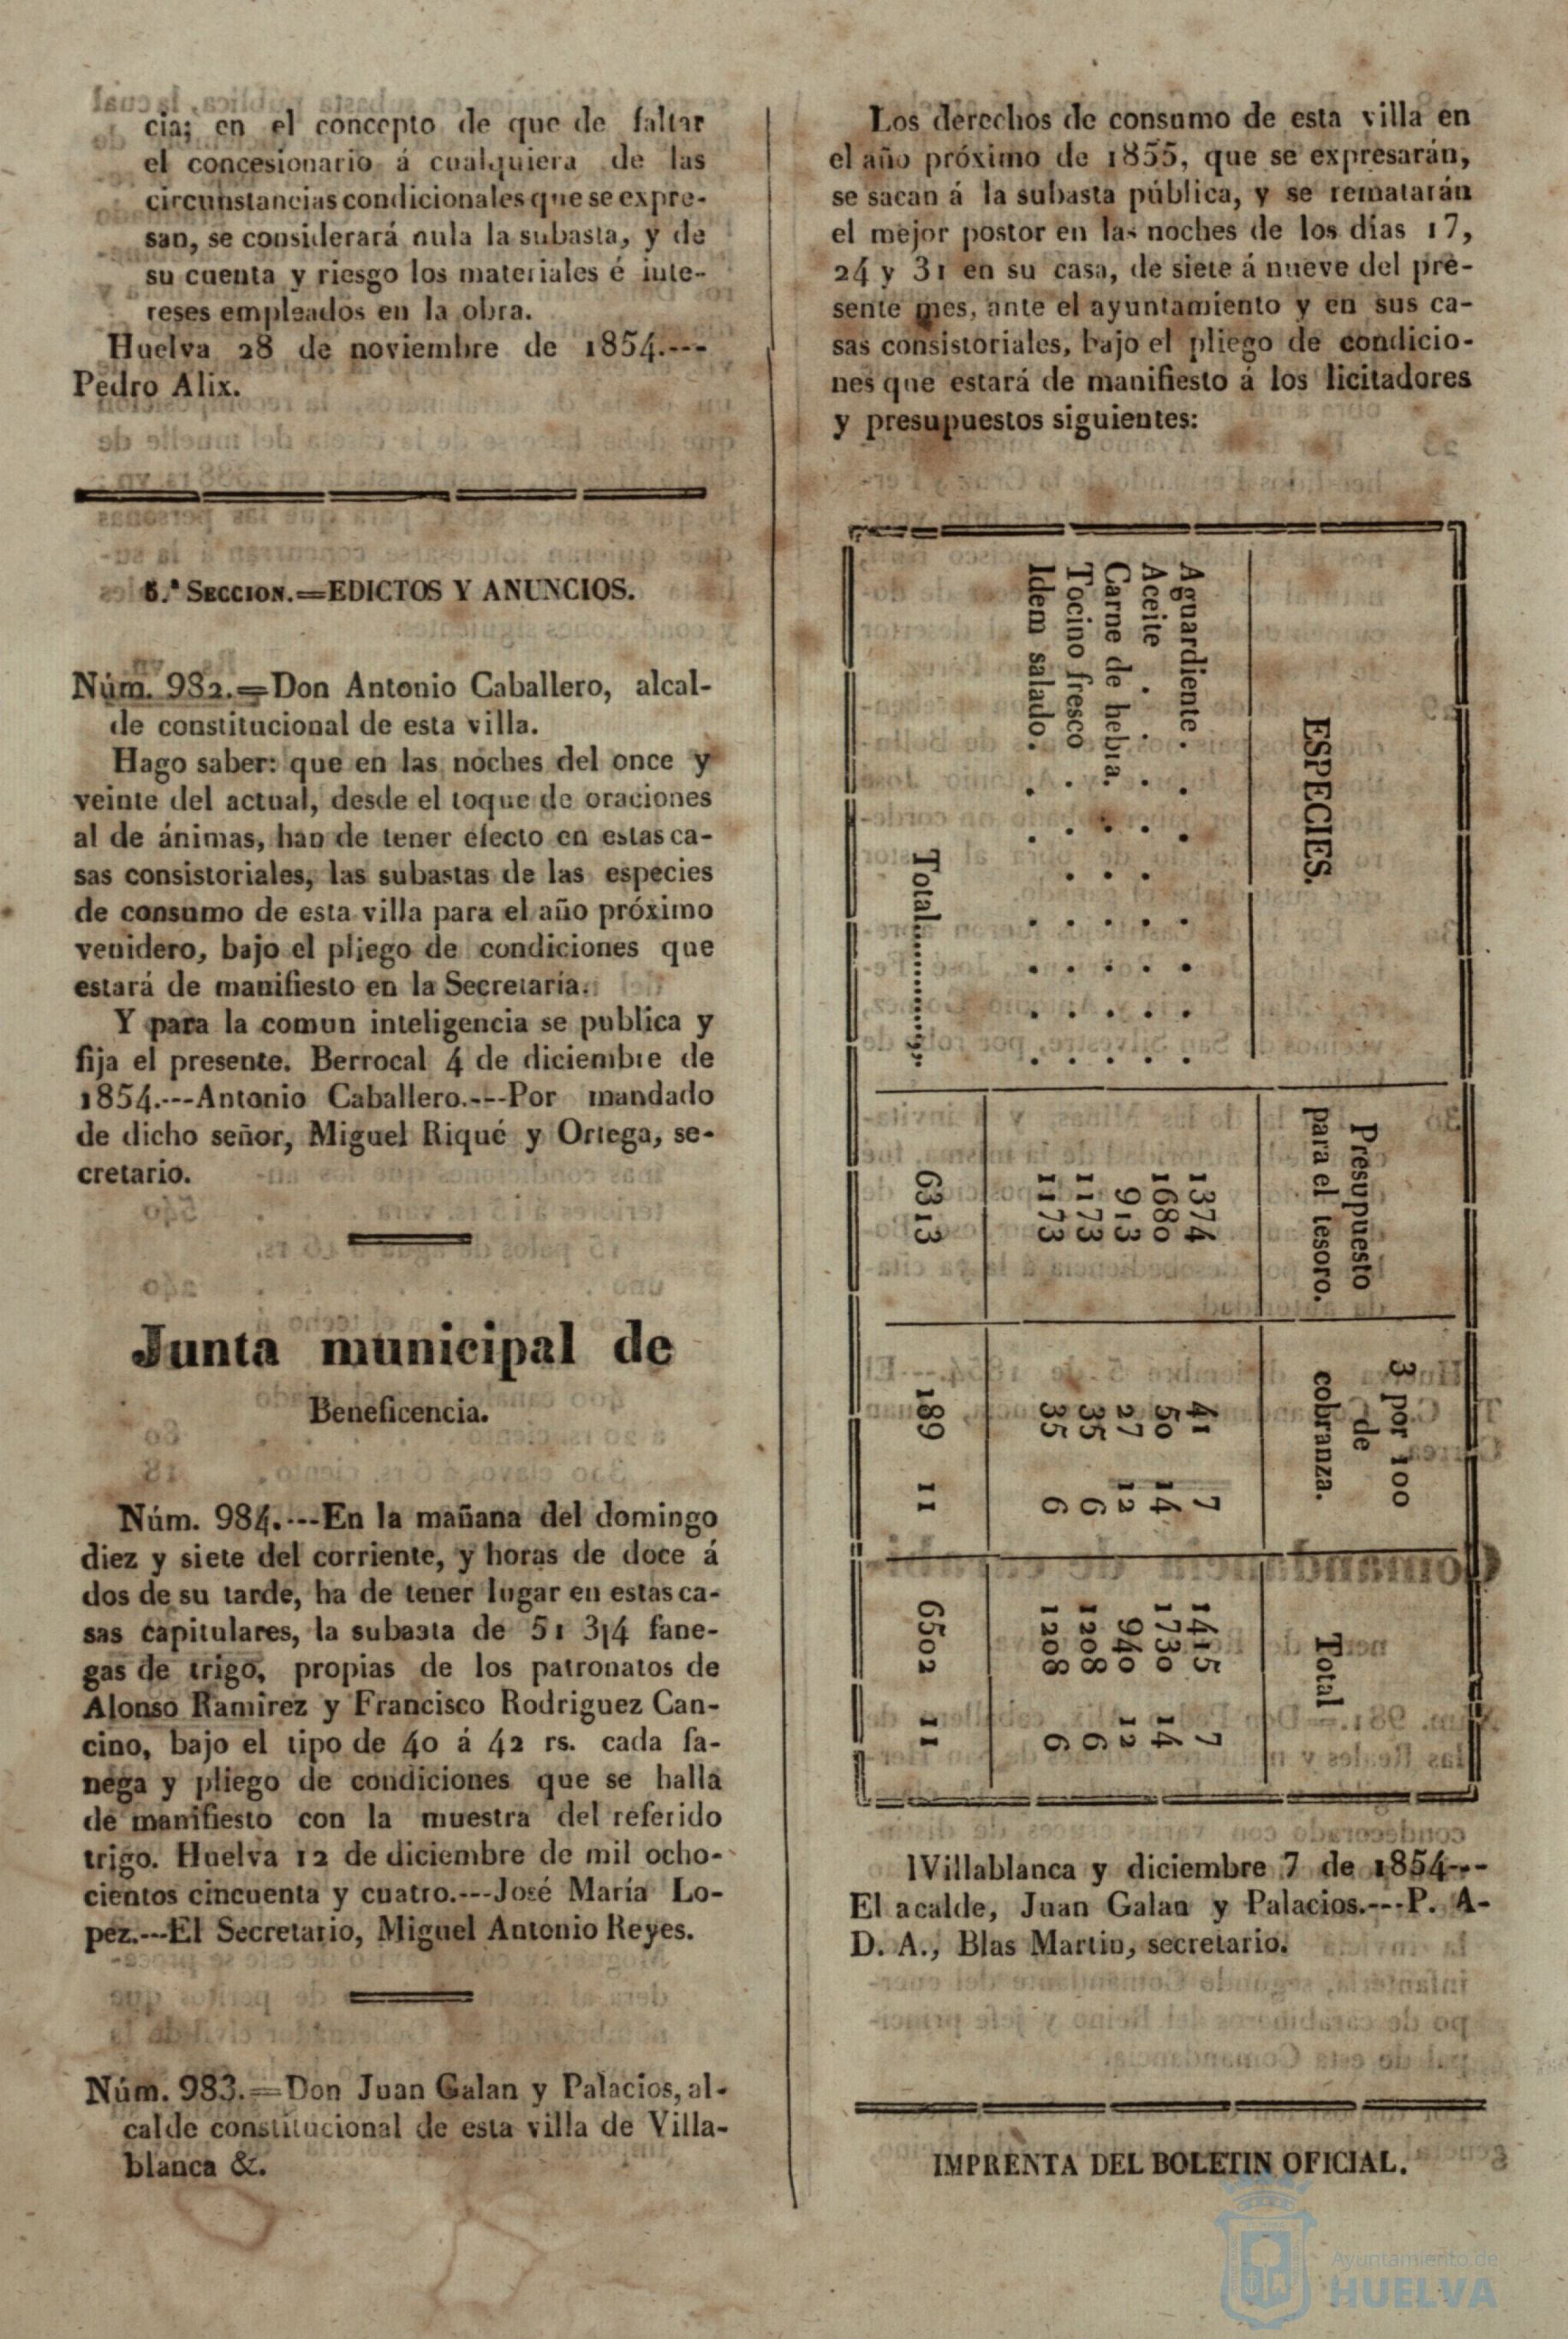 cia; en el concepto de que de faltar
el concesionario á cualquiera de las
circunstancias condicionales que se expre-
san, se considerará nula la subasta, y de
su cuenta y riesgo los materiales é inte-
reses empleados en la obra.
Huelva 28 de noviembre de 1854.---
Pedro Alix.
6.ª SECCION.=EDICTOS Y ANUNCIOS.
Núm. 982.=Don Antonio Caballero, alcal-
de constitucional de esta villa.
Hago saber: que en las noches del once y
veinte del actual, desde el toque de oraciones
al de ánimas, han de tener efecto en estas ca-
sas consistoriales, las subastas de las especies
de consumo de esta villa para el año próximo
venidero, bajo el pliego de condiciones que
estará de manifiesto en la Secretaría.
Y para la comun inteligencia se publica y
fija el presente. Berrocal 4 de diciembre de
1854.---Antonio Caballero.---Por mandado
de dicho señor, Miguel Riqué y Ortega, se-
cretario.
Junta municipal de
Beneficencia.
Núm. 984.---En la mañana del domingo
diez y siete del corriente, y horas de doce á
dos de su tarde, ha de tener lugar en estas ca-
sas capitulares, la subasta de 51 3/4 fane-
gas de trigo, propias de los patronatos de
Alonso Ramirez y Francisco Rodriguez Can-
cino, bajo el tipo de 40 á 42 rs. cada fa-
nega y pliego de condiciones que se halla
de manifiesto con la muestra del referido
trigo. Huelva 12 de diciembre de mil ocho-
cientos cincuenta y cuatro.---José María Lo-
pez.---El Secretario, Miguel Antonio Reyes.
Núm. 983.=Don Juan Galan y Palacios, al-
calde constitucional de esta villa de Villa-
blanca &.
Los derechos de consumo de esta villa en
el año próximo de 1855, que se expresarán,
se sacan á la subasta pública, y se rematarán
el mejor postor en las noches de los días 17,
24 y 31 en su casa, de siete á nueve del pre-
sente mes, ante el ayuntamiento y en sus ca-
sas consistoriales, bajo el pliego de condicio-
nes que estará de manifiesto á los licitadores
y presupuestos siguientes:
ESPECIES. Presupuesto para el tesoro. 3 por 100 de cobranza. Total
Aguardiente . . . . . . . 1374 41 7 1415 7
Aceite . . . . . . . . . 1680 50 14 1730 14
Carne de hebra. . . . . . . 913 27 12 940 12
Tocino fresco . . . . . . . 1173 35 6 1208 6
Idem salado. . . . . . . 1173 35 6 1208 6
Total............,, 6313 189 11 6502 11
lVillablanca y diciembre 7 de 1854---
El acalde, Juan Galan y Palacios.---P. A-
D. A., Blas Martin, secretario.
IMPRENTA DEL BOLETIN OFICIAL.
Ayuntamiento de
HUELVA